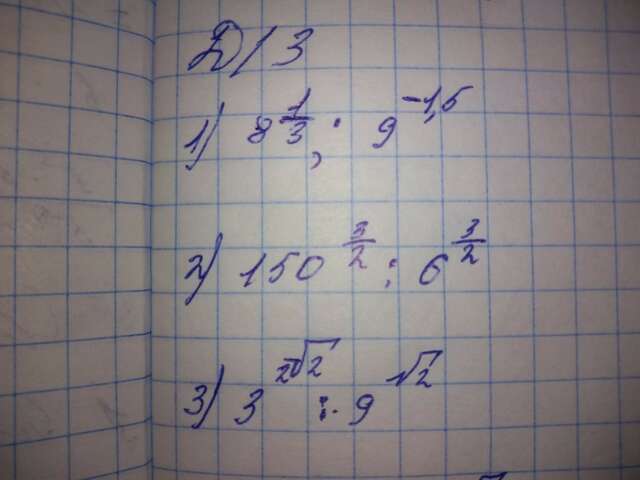 Д/З
1) 8^{\frac{1}{3}} : 9^{-1,5}
2) 150^{\frac{3}{2}} : 6^{\frac{3}{2}}
3) 3^{2\sqrt{2}} : 9^{\sqrt{2}}